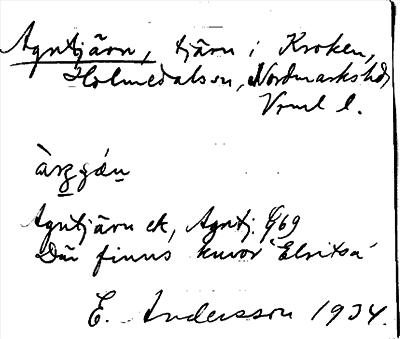 Agntjärn, tjärn i Kroken,
Holmedals sn, Nordmarks hd,
Vrml l.
Agntjärn ek, Agntj: G69
Där finns kuvor 'Elritsa'
E. Andersson 1934.